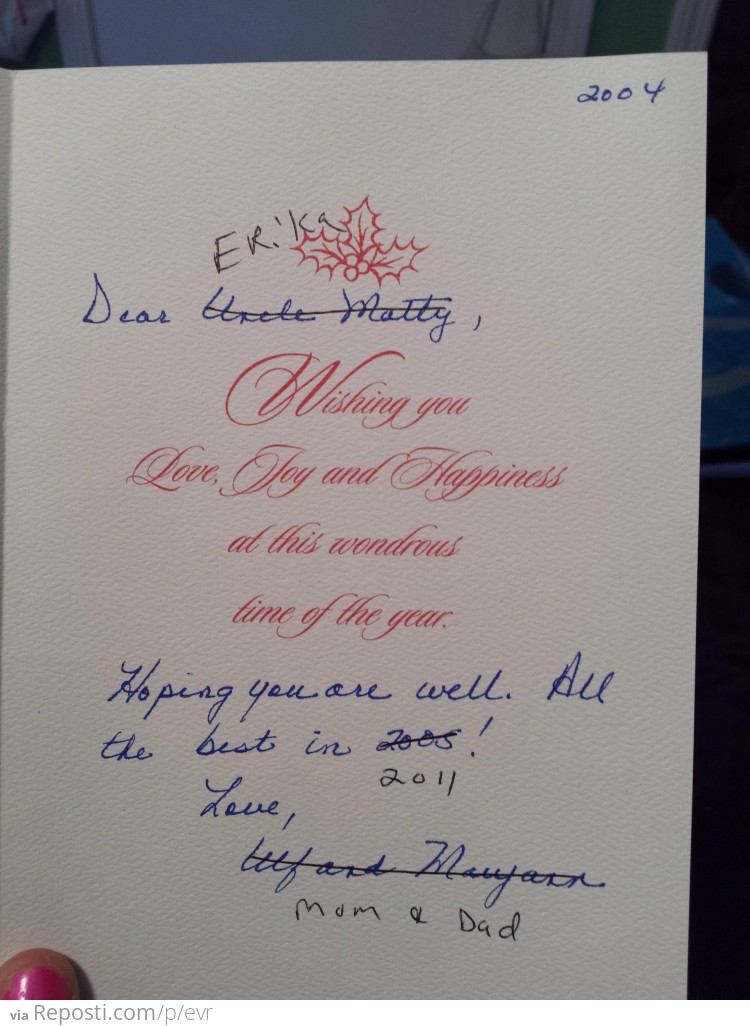 2004
Erika
Dear Uncle Matty,
Wishing you
Love, Joy and Happiness
at this wondrous
time of the year.
Hoping you are well. All
the best in 2005!
2011
Love,
Ulf and Maryann
Mom & Dad
via Reposti.com/p/evr